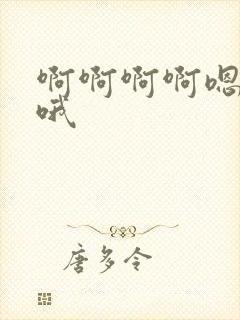 啊啊啊啊嗯
哦
唐多令